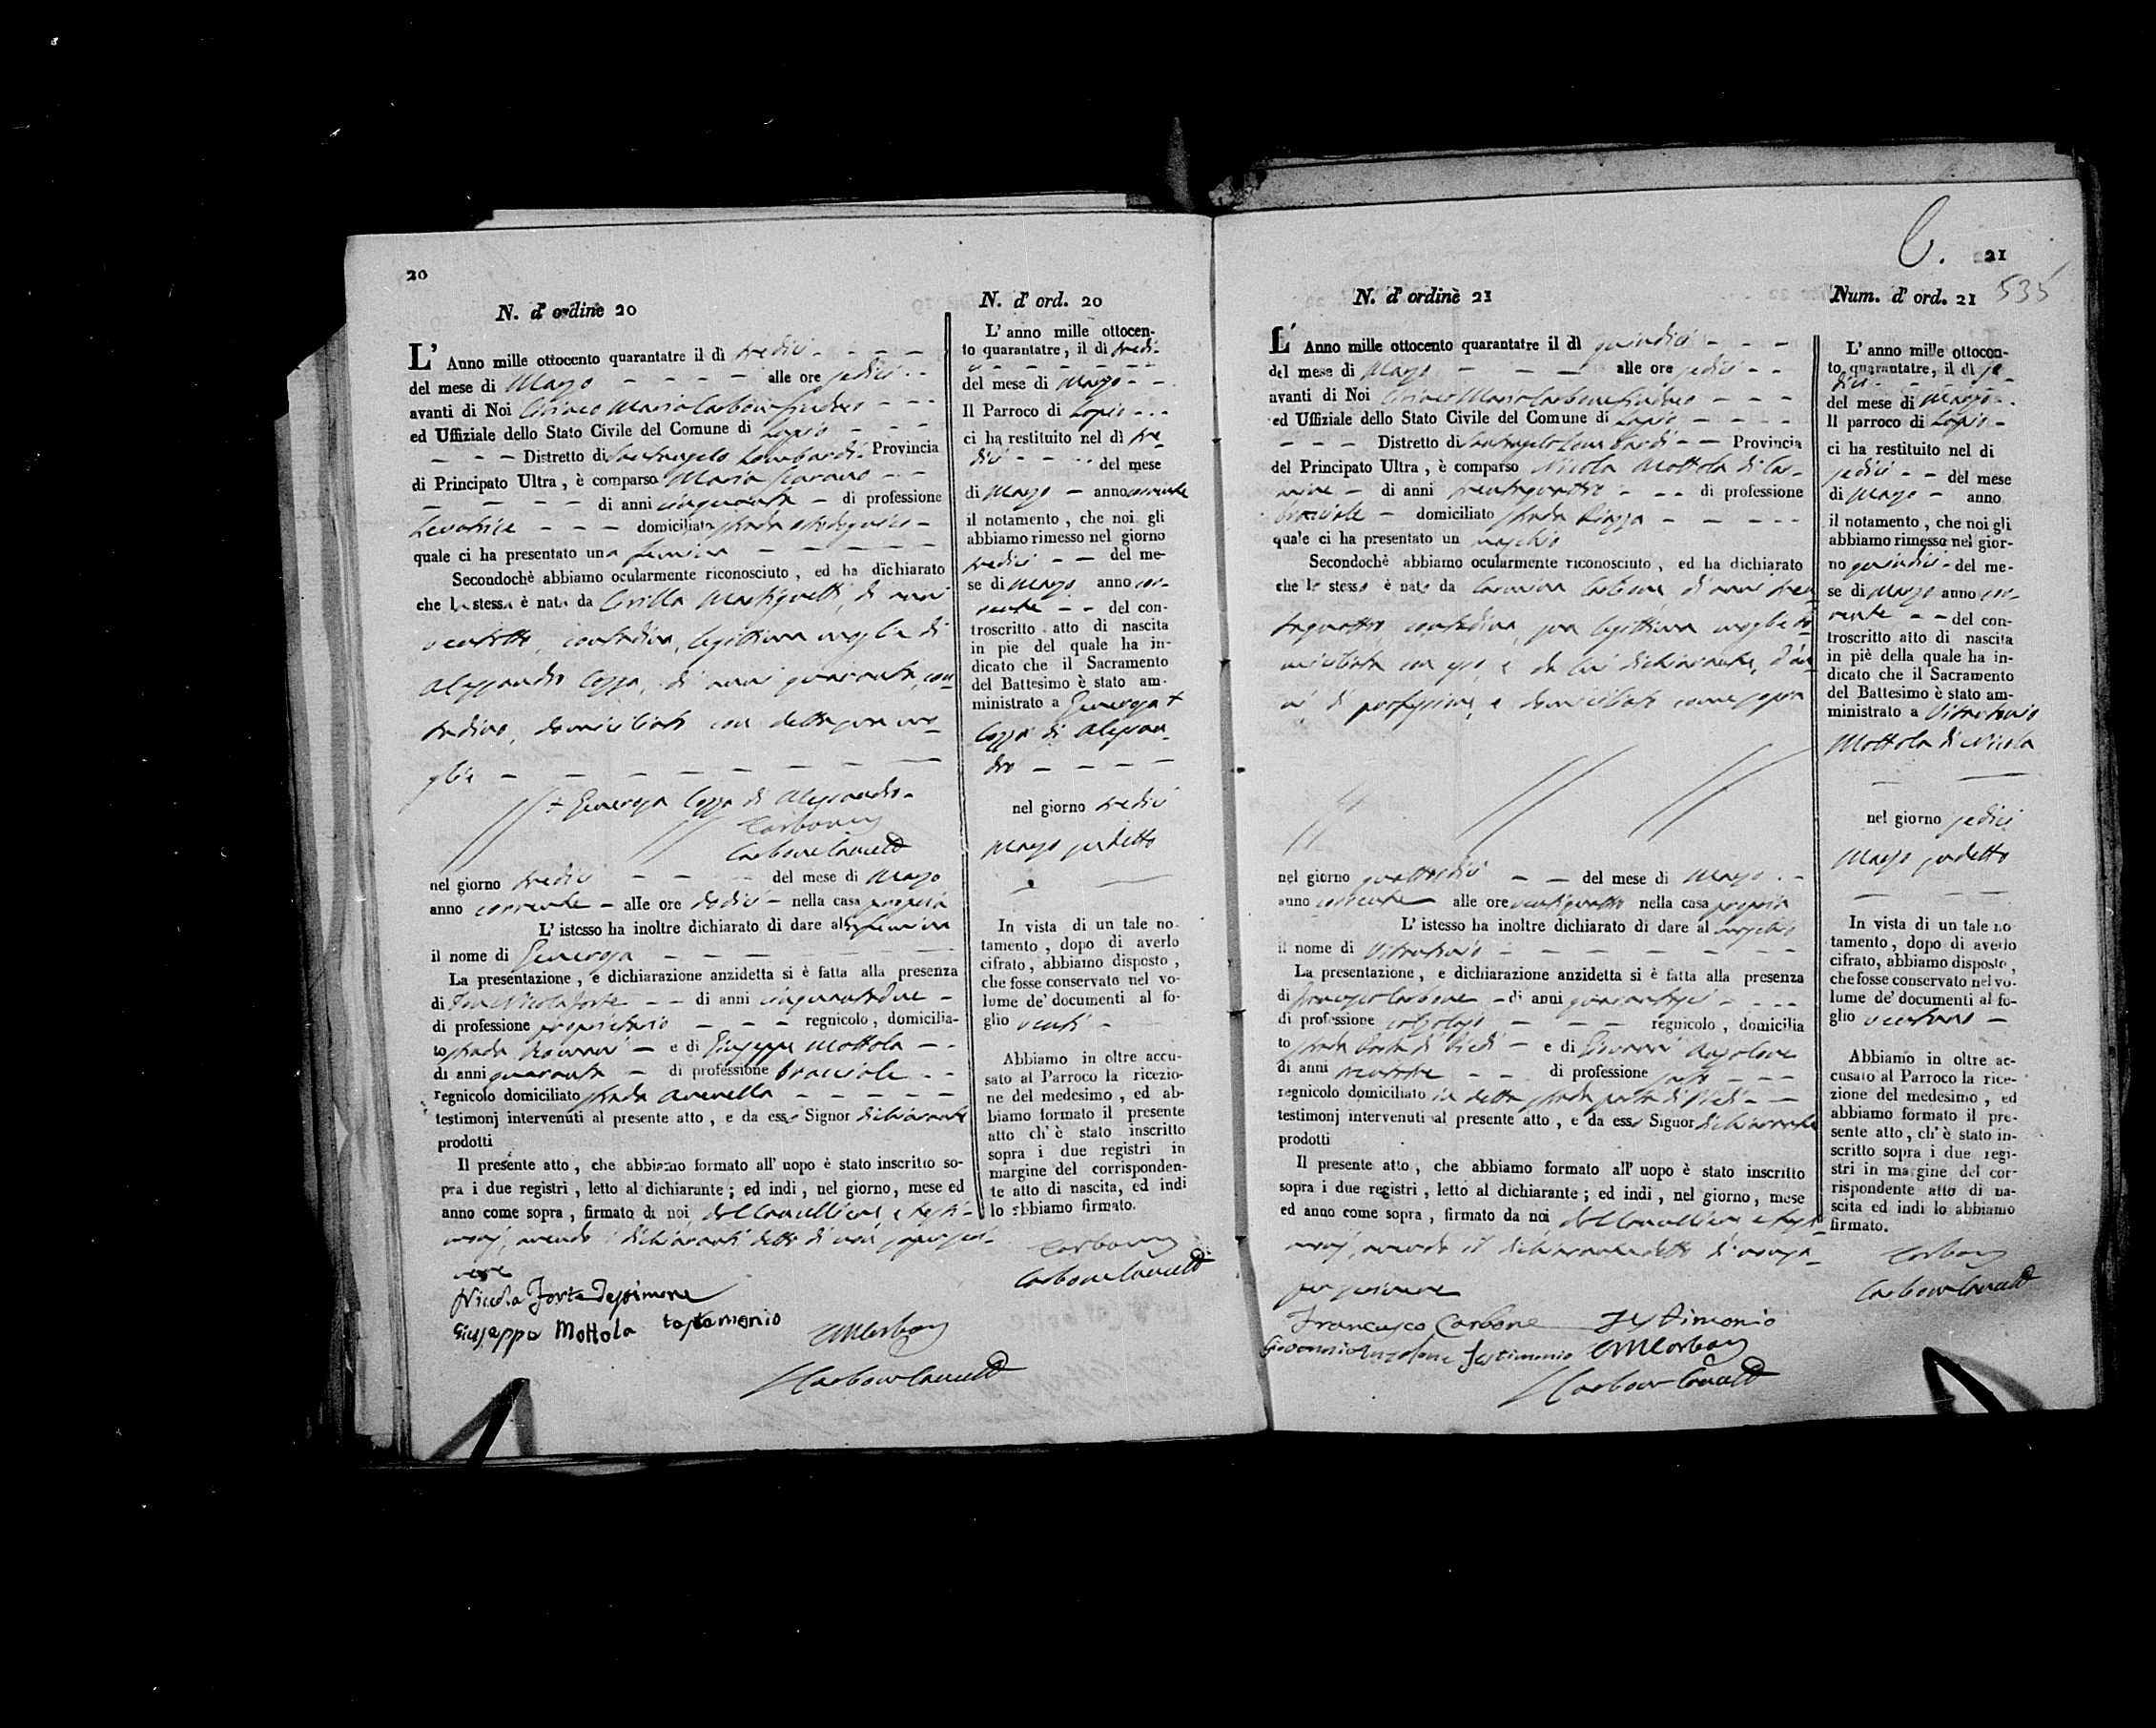 20
N. d' ordine 20
L' Anno mille ottocento quarantatre il dì tredici
del mese di Marzo alle ore sedici
avanti di Noi Ciriaco Maria Carbone Sindaco
ed Uffiziale dello Stato Civile del Comune di Lapio
Distretto di Santangelo Lombardi Provincia
di Principato Ultra, è comparsa Maria
di anni cinquanta di professione
Levatrice domiciliata strada
quale ci ha presentato una femina
Secondochè abbiamo ocularmente riconosciuto, ed ha dichiarato
che la stessa è nata da Cirilla di anni
ventotto, contadina, legittima moglie di
Alessandro Cozza, di anni quaranta, con-
tadino, domiciliati con detta sua mo-
glie
+ Generosa Cozza di Alessandro
Carbone
Carbone Cancell.
nel giorno tredici del mese di Marzo
anno corrente alle ore dodici nella casa propria
L' istesso ha inoltre dichiarato di dare alla femina
il nome di Generosa
La presentazione, e dichiarazione anzidetta si è fatta alla presenza
di Don Nicola Forte di anni cinquantadue
di professione proprietario regnicolo, domicilia-
to strada e di Giuseppe Mottola
di anni quaranta di professione bracciale
regnicolo domiciliato strada
testimonj intervenuti al presente atto, e da esso Signor dichiarante
prodotti
Il presente atto, che abbiamo formato all' uopo è stato inscritto so-
pra i due registri, letto al dichiarante; ed indi, nel giorno, mese ed
anno come sopra, firmato da noi, dal Cancelliere e testi-
monj, avendo i dichiaranti detto di non saper scri-
vere
Nicola Forte Testimone
Giuseppe Mottola testamonio
CMCarbone
Carbone Cancell.
N. d' ord. 20
L' anno mille ottocen-
to quarantatre, il dì tredi-
ci
del mese di Marzo
Il Parroco di Lapio
ci ha restituito nel dì tre
dici del mese
di Marzo anno corrente
il notamento, che noi gli
abbiamo rimesso nel giorno
tredici del me-
se di Marzo anno cor-
rente del con-
troscritto atto di nascita
in pie del quale ha in-
dicato che il Sacramento
del Battesimo è stato am-
ministrato a Generosa +
Cozza di Alessan-
dro
nel giorno tredici
Marzo sudetto
In vista di un tale no-
tamento, dopo di averlo
cifrato, abbiamo disposto,
che fosse conservato nel vo-
lume de' documenti al fo-
glio venti
Abbiamo in oltre accu-
sato al Parroco la ricezio-
ne del medesimo, ed ab-
biamo formato il presente
atto ch' è stato inscritto
sopra i due registri in
margine del corrisponden-
te atto di nascita, ed indi
lo abbiamo firmato.
Carbone
Carbone Cancell.
21
535
N. d' ordinè 21
L' Anno mille ottocento quarantatre il dì quindici
del mese di Marzo alle ore sedici
avanti di Noi Ciriaco Maria Carbone Sindaco
ed Uffiziale dello Stato Civile del Comune di Lapio
Distretto di Santangelo Lombardi Provincia
del Principato Ultra, è comparso Nicola Mottola di Car-
mine di anni trentaquattro di professione
bracciale domiciliato strada Piazza
quale ci ha presentato un maschio
Secondochè abbiamo ocularmente riconosciuto, ed ha dichiarato
che lo stesso è nato da Carmina Carbone, di anni tren-
taquattro contadina, sua legittima moglie do-
miciliata con esso, e da lui dichiarante, d'an-
ni di professione, e domiciliato come sopra
nel giorno quattordici del mese di Marzo
anno corrente alle ore ventiquattro nella casa propria
L' istesso ha inoltre dichiarato di dare al maschio
il nome di Vitantonio
La presentazione, e dichiarazione anzidetta si è fatta alla presenza
di Francesco Carbone di anni quarantasei
di professione calzolajo regnicolo, domicilia
to strada Porta di Piedi e di Giovanni Anzolone
di anni di professione sarto
regnicolo domiciliato in detta strada porta di Piedi
testimonj intervenuti al presente atto, e da esso Signor dichiarante
prodotti
Il presente atto, che abbiamo formato all' uopo è stato inscritto
sopra i due registri, letto al dichiarante; ed indi, nel giorno, mese
ed anno come sopra, firmato da noi dal Cancelliere e testi-
monj, avendo il dichiarante detto di non sa-
per scrivere
Francesco Carbone Testimonio
Giovanni Anzolone testimonio CMCarbone
Carbone Cancell.
Num. d' ord. 21
L' anno mille ottocen-
to quarantatre, il dì se
dici
del mese di Marzo
Il parroco di Lapio
ci ha restituito nel di
sedici del mese
di Marzo anno
il notamento, che noi gli
abbiamo rimesso nel gior-
no quindici del me-
se di Marzo anno cor-
rente del con-
troscritto atto di nascita
in piè della quale ha in-
dicato che il Sacramento
del Battesimo è stato am-
ministrato a Vitantonio
Mottola di Nicola
nel giorno sedici
Marzo sudetto
In vista di un tale no-
tamento, dopo di averlo
cifrato, abbiamo disposto,
che fosse conservato nel vo-
lume de' documenti al fo-
glio ventuno
Abbiamo in oltre ac-
cusato al Parroco la rice-
zione del medesimo, ed
abbiamo formato il pre-
sente atto, ch' è stato in-
scritto sopra i due regi-
stri in margine del cor-
rispondente atto di na-
scita ed indi lo abbiamo
firmato.
Carbone
Carbone Cancell.